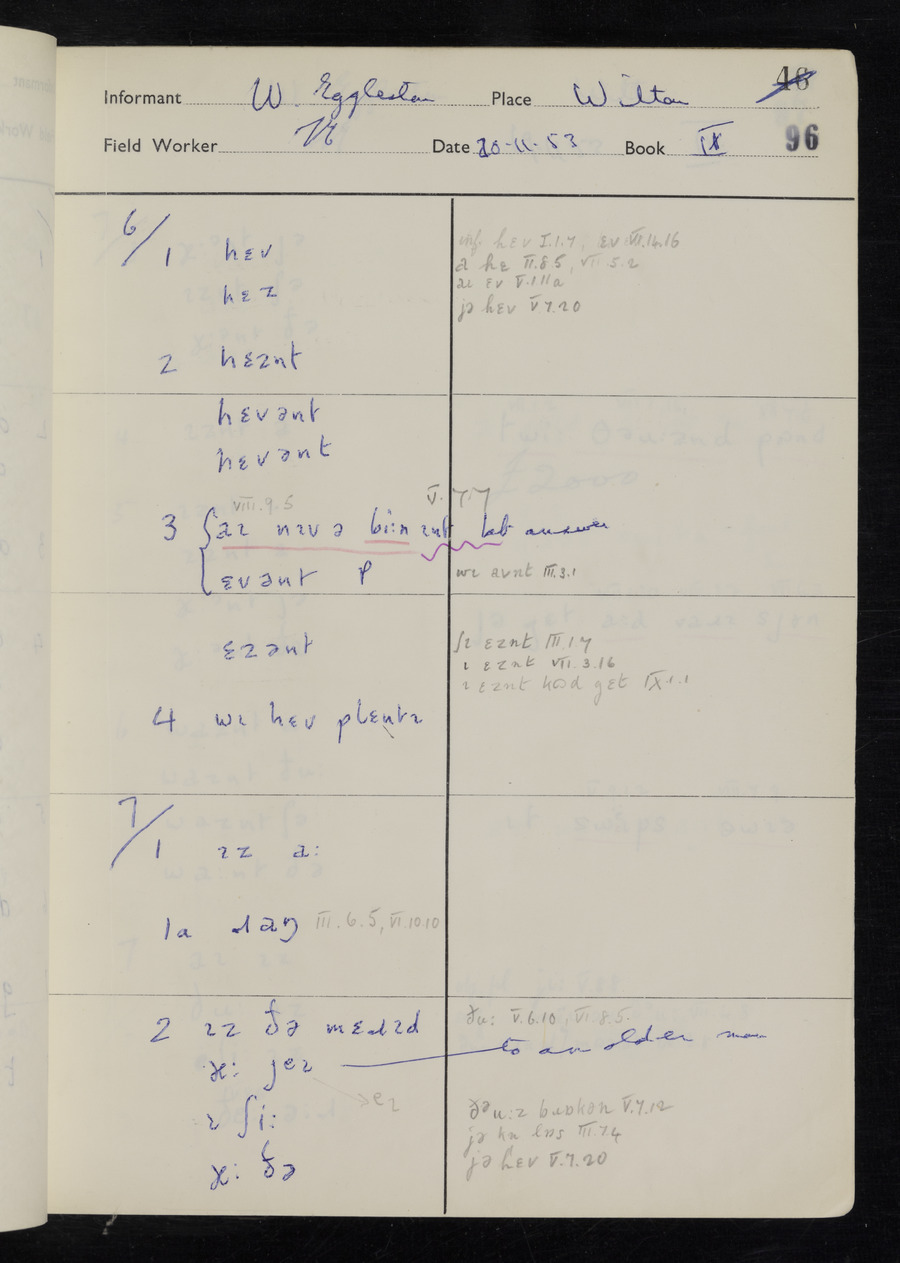 46
Informant W. Eggleston Place Wilton
Field Worker Date 20-11-53 Book IX 96
6/1 hɛv
hɛz
inf. hɛv I.1.7, ɛv VI.14.16
hɛ II.8.5, VII.5.2
ɛv V.1.11a
jə hɛv V.7.20
2 hɛznt
hɛvənt
hɛvənt
VIII.9.5
V.7.7
3 aɪ nɪvə bi:n last answer
ɛvənt P
wɪ avnt III.3.1
ɛzənt
ʃɪ ɛznt III.1.7
ɪ ɛznt VII.3.16
ɪ ɛznt kʊd get IX.1.1
4 wɪ hɛv plɛntɪ
7/1 ɪz a:
1a aŋ III.6.5, VI.10.10
2 ɪz ðə mɛɹɪd
ðu: V.6.10, VI.8.5.
jeɪ to an older man
>eɪ
ɪ ʃi:
V.7.12
jə III.7.4
jə hɛv V.7.20
ðə